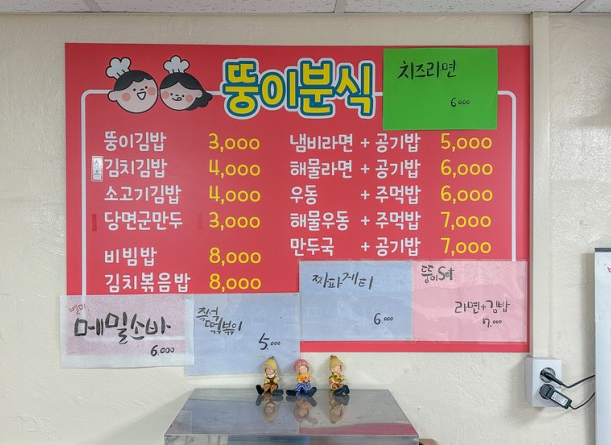 뚱이분식
치즈라면
6000
뚱이김밥 3,000
김치김밥 4,000
소고기김밥 4,000
당면군만두 3,000
비빔밥 8,000
김치볶음밥 8,000
냄비라면 + 공기밥 5,000
해물라면 + 공기밥 6,000
우동 + 주먹밥 6,000
해물우동 + 주먹밥 7,000
만두국 + 공기밥 7,000
별미
메밀소바
6.000
즉석
떡볶이
5.000
짜파게티
6.000
뚱이Set
라면+김밥
7.000